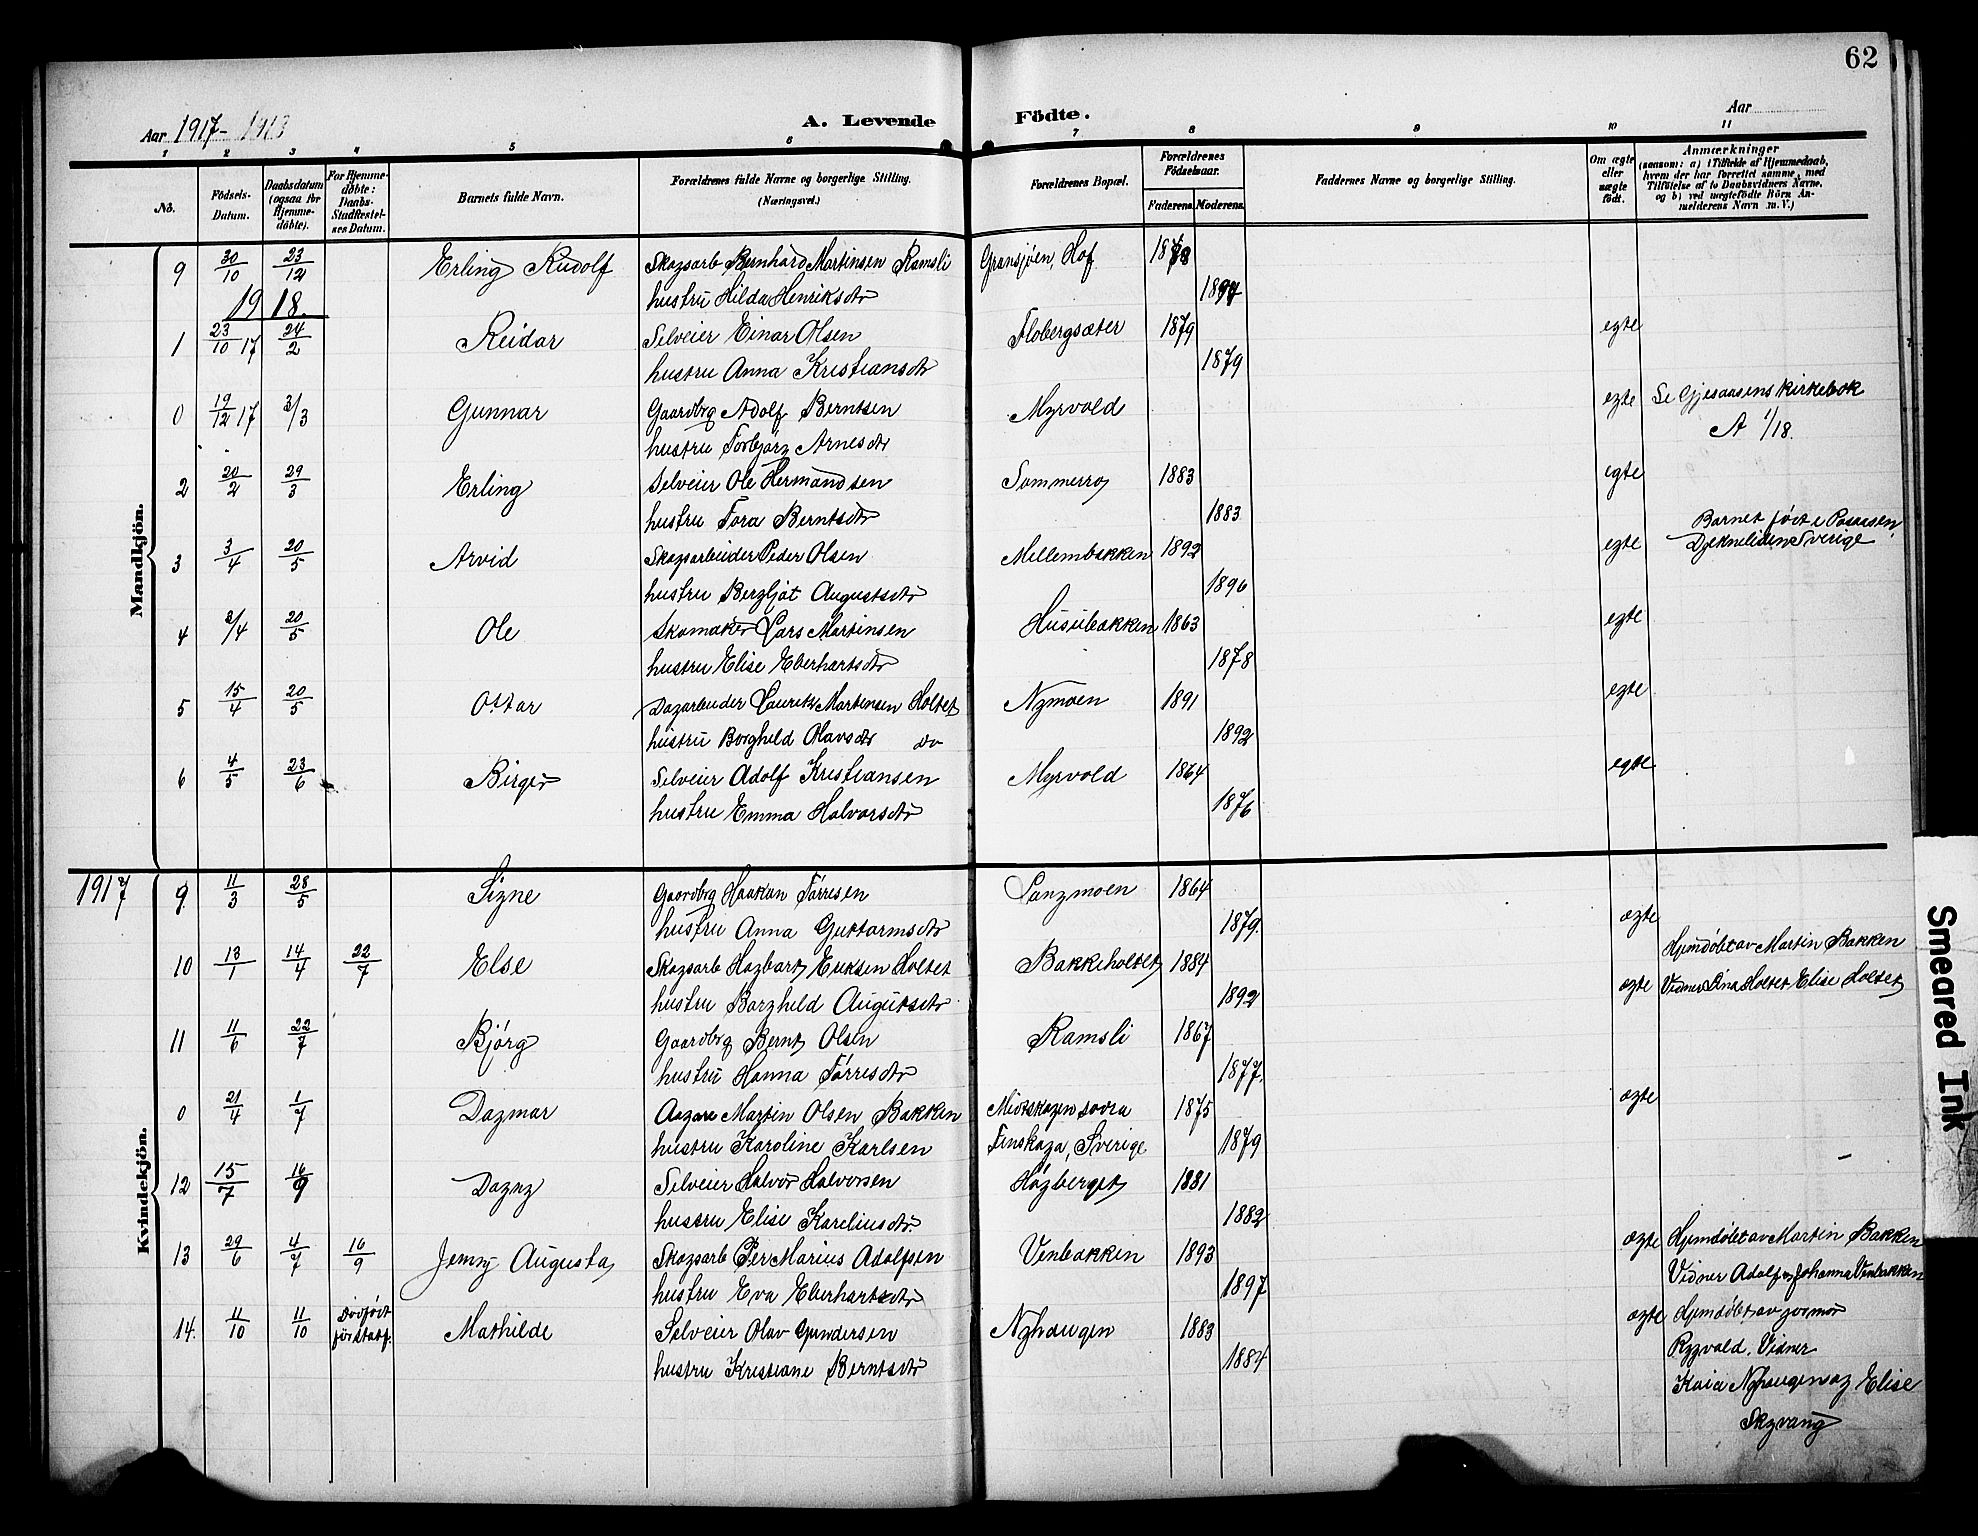 62
Aar 1917-1913
A. Levende Födte.
Aar
1 2 3 4 5 6 7 8 9 10 11
No.
Födsels-Datum.
Daabsdatum (ogsaa for Hjemme-döbte).
For Hjemme-döbte: Daabs-Stadfestel-ses Datum.
Barnets fulde Navn.
Forældrenes fulde Navne og borgerlige Stilling. (Næringsvei.)
Forældrenes Bopæl.
Forældrenes Födselsaar.
Faderens. Moderens.
Faddernes Navne og borgerlige Stilling.
Om ægte eller uægte födt.
Anmærkninger
(saasom: a) i Tilfælde af Hjemmedaab, hvem der har forrettet samme, med Tilföielse af to Daabsvidners Navne, og b) ved uægtefödte Börn An-melderens Navn m. V.)
Mandkjön.
9 30/10 23/12 Erling Rudolf Skogsarb Bernhard Martinsen Ramsli Gransjøen, Hof
hustru Hilda Henriksdtr
1918.
1 23/10 17 24/2 Reidar Selveier Einar Olsen Flobergsæter 1879 egte
hustru Anna Kristiansdtr 1879
0 19/12 17 3/3 Gunnar Gaardbrg Adolf Berntsen Myrvold egte Se Gjesaasens kirkebok
hustru Torbjørg Arnesdtr A 1/18.
2 20/2 29/3 Erling Selveier Ole Hermandsen Sommerro 1883 egte
hustru Tora Berntsdtr 1883
3 3/4 20/5 Arvid Skogsarbeider Peder Olsen Mellembakken 1892 egte Barnet født i Posaasen, Djekneliden Sverige
hustru Bergljot Augustsdtr 1896
4 2/4 20/5 Ole Skomaker Lars Martinsen Husubakken 1863 egte
hustru Elise Eberhartsdtr 1878
5 15/4 20/5 Ottar Dagarbeider Lauritz Martinsen Holtet Nymoen 1891 egte
hustru Borghild Olavsdtr do 1892
6 4/5 23/6 Birger Selveier Adolf Kristiansen Myrvold 1864 egte
hustru Emma Halvorsdtr 1876
Kvindekjön.
1917 9 11/3 28/5 Signe Gaardbrg Haakan Tørresen Langmoen 1864
hustru Anna Guttormsdtr 1879. ægte
10 13/1 14/4 22/7 Else Skogsarb Hagbart Eriksen Holtet Bakkeholtet 1884 Hjemdøbt av Martin Bakken
hustru Borghild Augustsdtr 1892 ægte Vidner Lina Holtet Elise Holtet
11 11/6 22/7 Bjørg Gaardbrg Bernt Olsen Ramsli 1867
hustru Hanna Tørresdtr 1877.
0 21/4 1/7 Dagmar Martin Olsen Bakken Midtskogen södra 1875 ægte
hustru Karoline Karlsen Finskoga, Sverige 1879
12 15/7 16/9 Dagny Selveier Halvor Halvorsen Høgberget 1881
hustru Elise Kareliusdtr 1882
13 29/6 4/7 16/9 Jenny Augusta Skogsarb Per Marius Adolfsen Venbakken 1893 ægte Hjemdøbt av Martin Bakken
hustru Eva Eberhartsdtr 1897 Vidner Adolf og Johanna Venbakken
14. 11/10 11/10 Mathilde Selveier Olav Gundersen Nyhaugen 1883 ægte Hjemdøbt av jormor
hustru Kristiane Berntsdtr 1884 Rygvold. Vidner
Kaia Nyhaugen og Elise
Skyvang
Smeared Ink